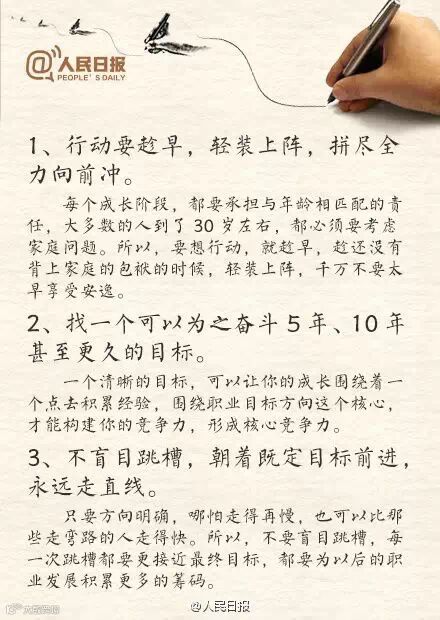 @人民日报
PEOPLE'S DAILY
1、行动要趁早，轻装上阵，拼尽全
力向前冲。
每个成长阶段，都要承担与年龄相匹配的责
任，大多数的人到了30岁左右，都必须要考虑
家庭问题。所以，要想行动，就趁早，趁还没有
背上家庭的包袱的时候，轻装上阵，千万不要太
早享受安逸。
2、找一个可以为之奋斗5年、10年
甚至更久的目标。
一个清晰的目标，可以让你的成长围绕着一
个点去积累经验，围绕职业目标方向这个核心，
才能构建你的竞争力，形成核心竞争力。
3、不盲目跳槽，朝着既定目标前进，
永远走直线。
只要方向明确，哪怕走得再慢，也可以比那
些走弯路的人走得快。所以，不要盲目跳槽，每
一次跳槽都要更接近最终目标，都要为以后的职
业发展积累更多的筹码。
@人民日报